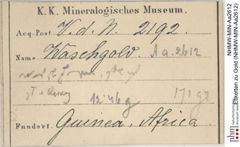 K. K. Mineralogisches Museum.
Acq-Post V. d. N. 2192.
Name Waschgold Aa 2612
12.46 g 171 gr
Fundort. Guinea, Africa
NHMW-MIN-Aa2612
Etiketten zu Gold (NHMW-MIN-Aa2612)
nhm